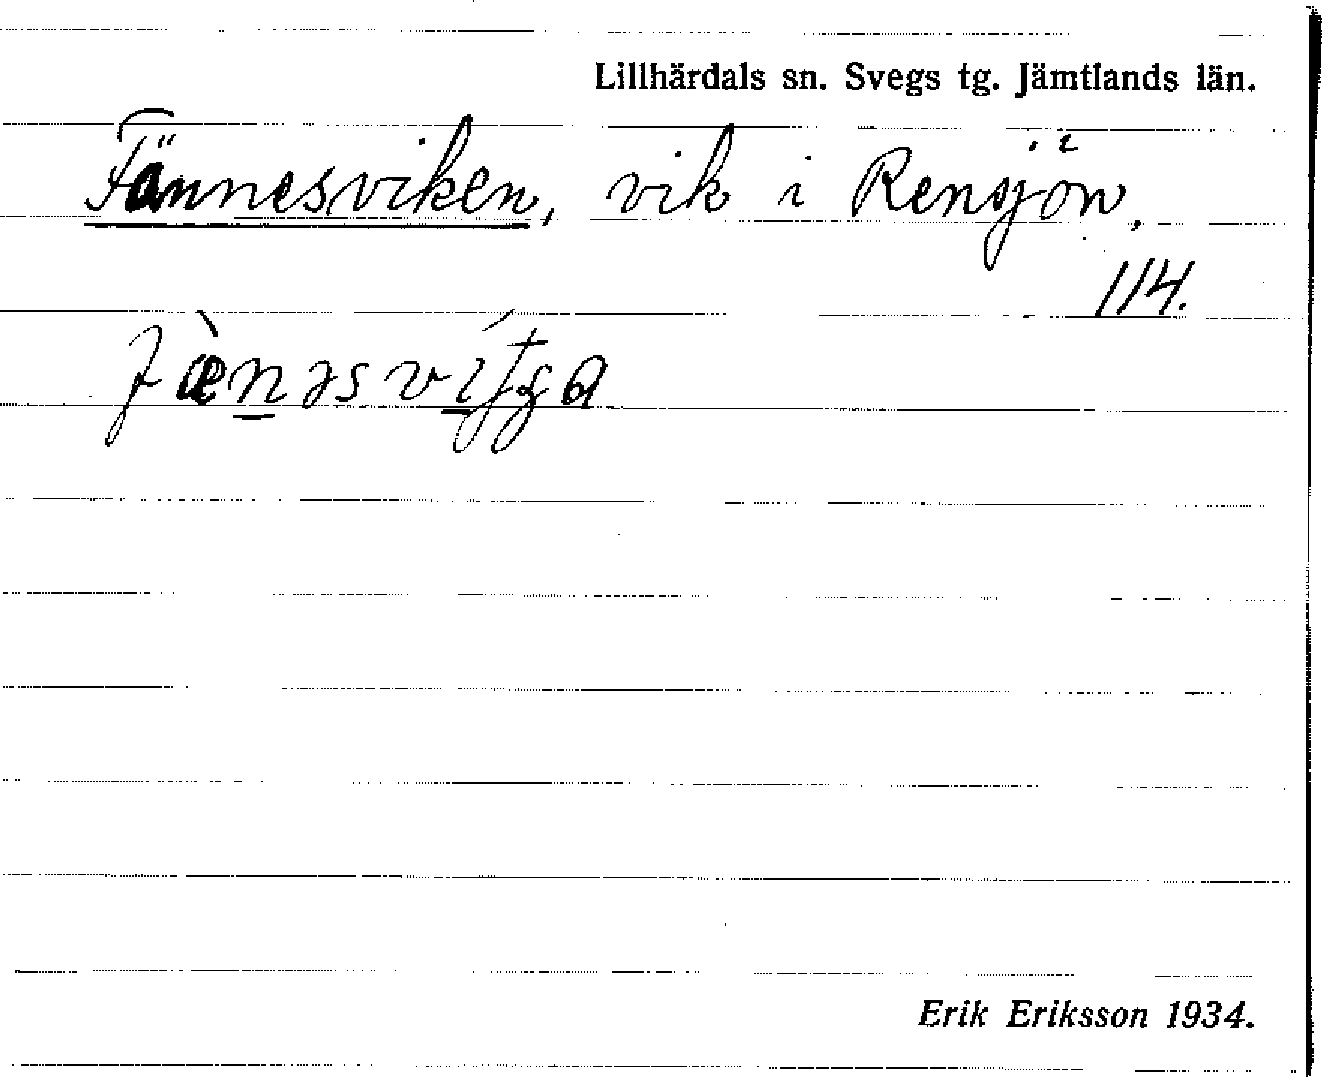 Lillhärdals sn. Svegs tg. Jämtlands län.
Fännesviken, vik i Rensjön.
114.
Erik Eriksson 1934.